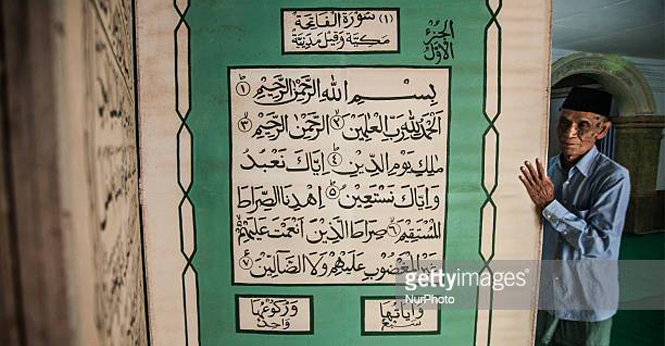 (١) سُورَةُ الْفَاتِحَةِ
مَكِّيَّةٌ وَقِيْلَ مَدَنِيَّةٌ
الجُزْءُ
الْأَوَّلُ
بِسْمِ اللهِ الرَّحْمٰنِ الرَّحِيْمِ ١
اَلْحَمْدُ لِلّٰهِ رَبِّ الْعٰلَمِيْنَ ٢ الرَّحْمٰنِ الرَّحِيْمِ ٣
مٰلِكِ يَوْمِ الدِّيْنِ ٤ اِيَّاكَ نَعْبُدُ
وَاِيَّاكَ نَسْتَعِيْنُ ٥ اِهْدِنَا الصِّرَاطَ
الْمُسْتَقِيْمَ ٦ صِرَاطَ الَّذِيْنَ اَنْعَمْتَ عَلَيْهِمْ
غَيْرِ الْمَغْضُوْبِ عَلَيْهِمْ وَلَا الضَّالِّيْنَ ٧
وَاٰيَاتُهَا
سَبْعٌ
وَرُكُوْعُهَا
وَاحِدٌ
gettyimages
NurPhoto